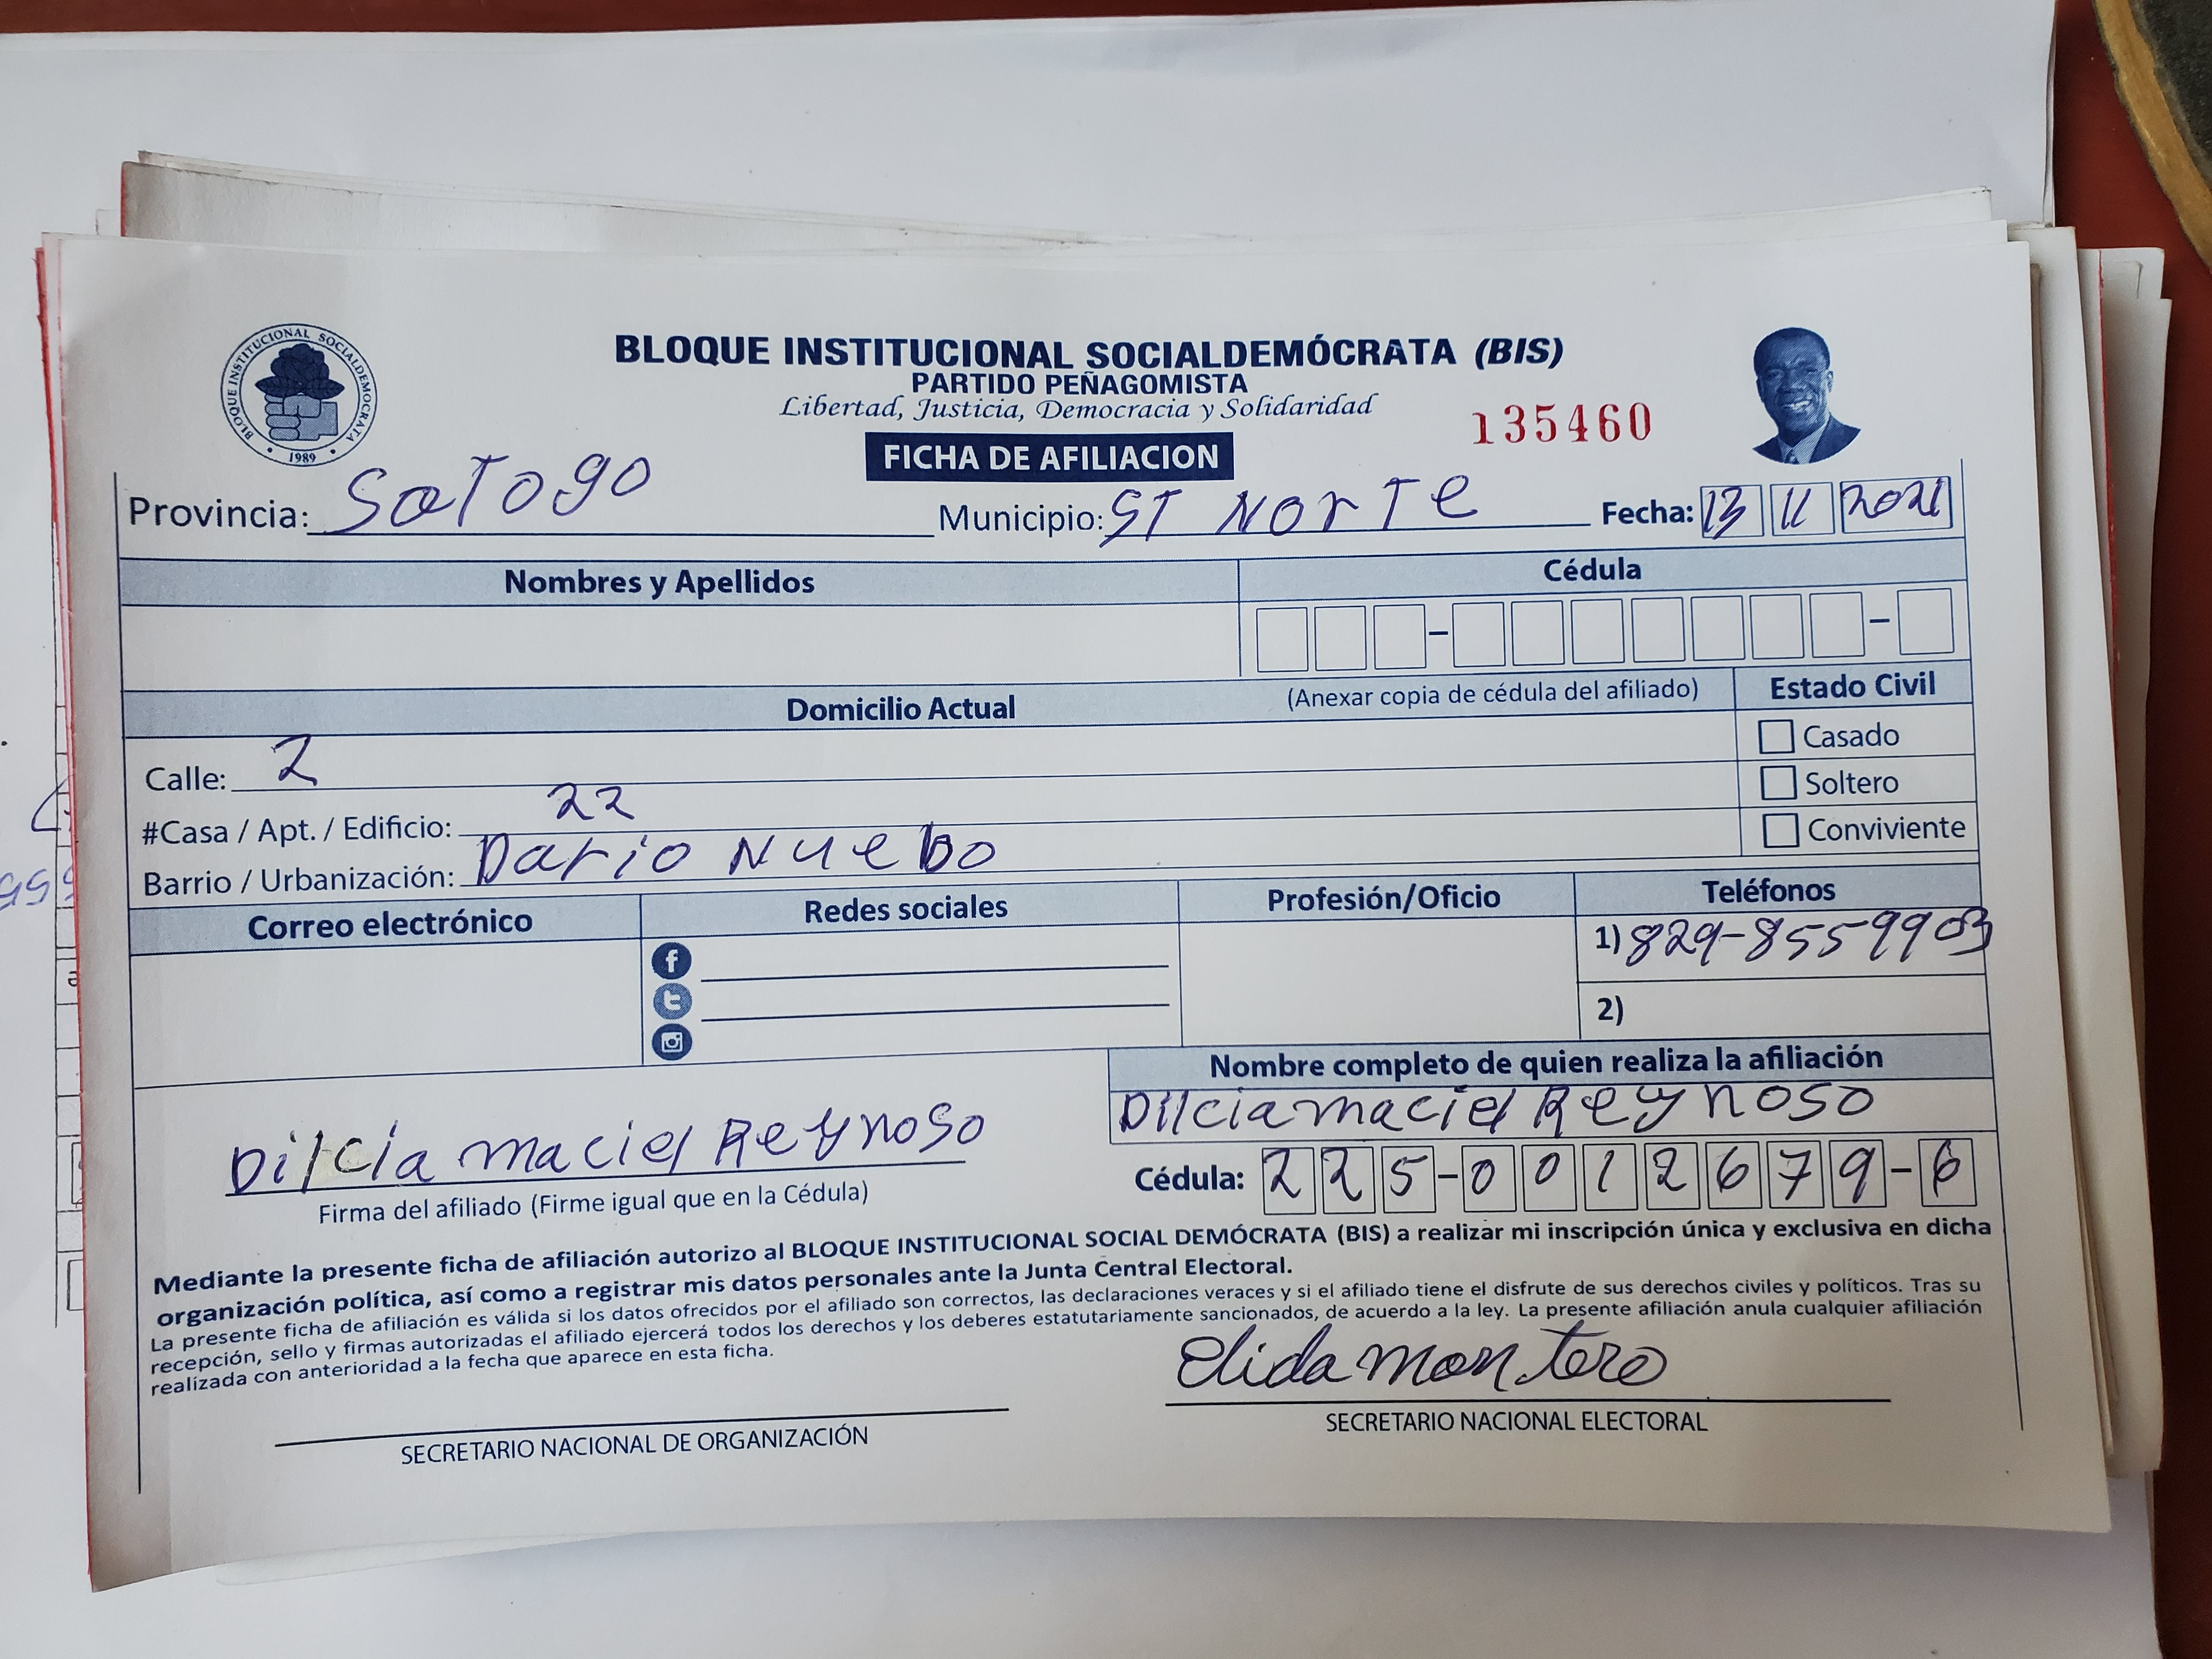 BLOQUE INSTITUCIONAL SOCIALDEMÓCRATA
1989
BLOQUE INSTITUCIONAL SOCIALDEMÓCRATA (BIS)
PARTIDO PEÑAGOMISTA
Libertad, Justicia, Democracia y Solidaridad
135460
FICHA DE AFILIACION
Provincia: SaTogo Municipio: ST NorTe Fecha: 13 11 2021
Nombres y Apellidos Cédula
Domicilio Actual (Anexar copia de cédula del afiliado) Estado Civil
Calle: 2 Casado
#Casa / Apt. / Edificio: 22 Soltero
Barrio / Urbanización: Dario Nuebo Conviviente
Correo electrónico Redes sociales Profesión/Oficio Teléfonos
1) 829-8559903
2)
Nombre completo de quien realiza la afiliación
Dilcia maciel Reynoso
Dilcia maciel Reynoso
Cédula: 225-0012679-6
Firma del afiliado (Firme igual que en la Cédula)
Mediante la presente ficha de afiliación autorizo al BLOQUE INSTITUCIONAL SOCIAL DEMÓCRATA (BIS) a realizar mi inscripción única y exclusiva en dicha
organización política, así como a registrar mis datos personales ante la Junta Central Electoral.
La presente ficha de afiliación es válida si los datos ofrecidos por el afiliado son correctos, las declaraciones veraces y si el afiliado tiene el disfrute de sus derechos civiles y políticos. Tras su
recepción, sello y firmas autorizadas el afiliado ejercerá todos los derechos y los deberes estatutariamente sancionados, de acuerdo a la ley. La presente afiliación anula cualquier afiliación
realizada con anterioridad a la fecha que aparece en esta ficha.
Elida montero
SECRETARIO NACIONAL DE ORGANIZACIÓN SECRETARIO NACIONAL ELECTORAL